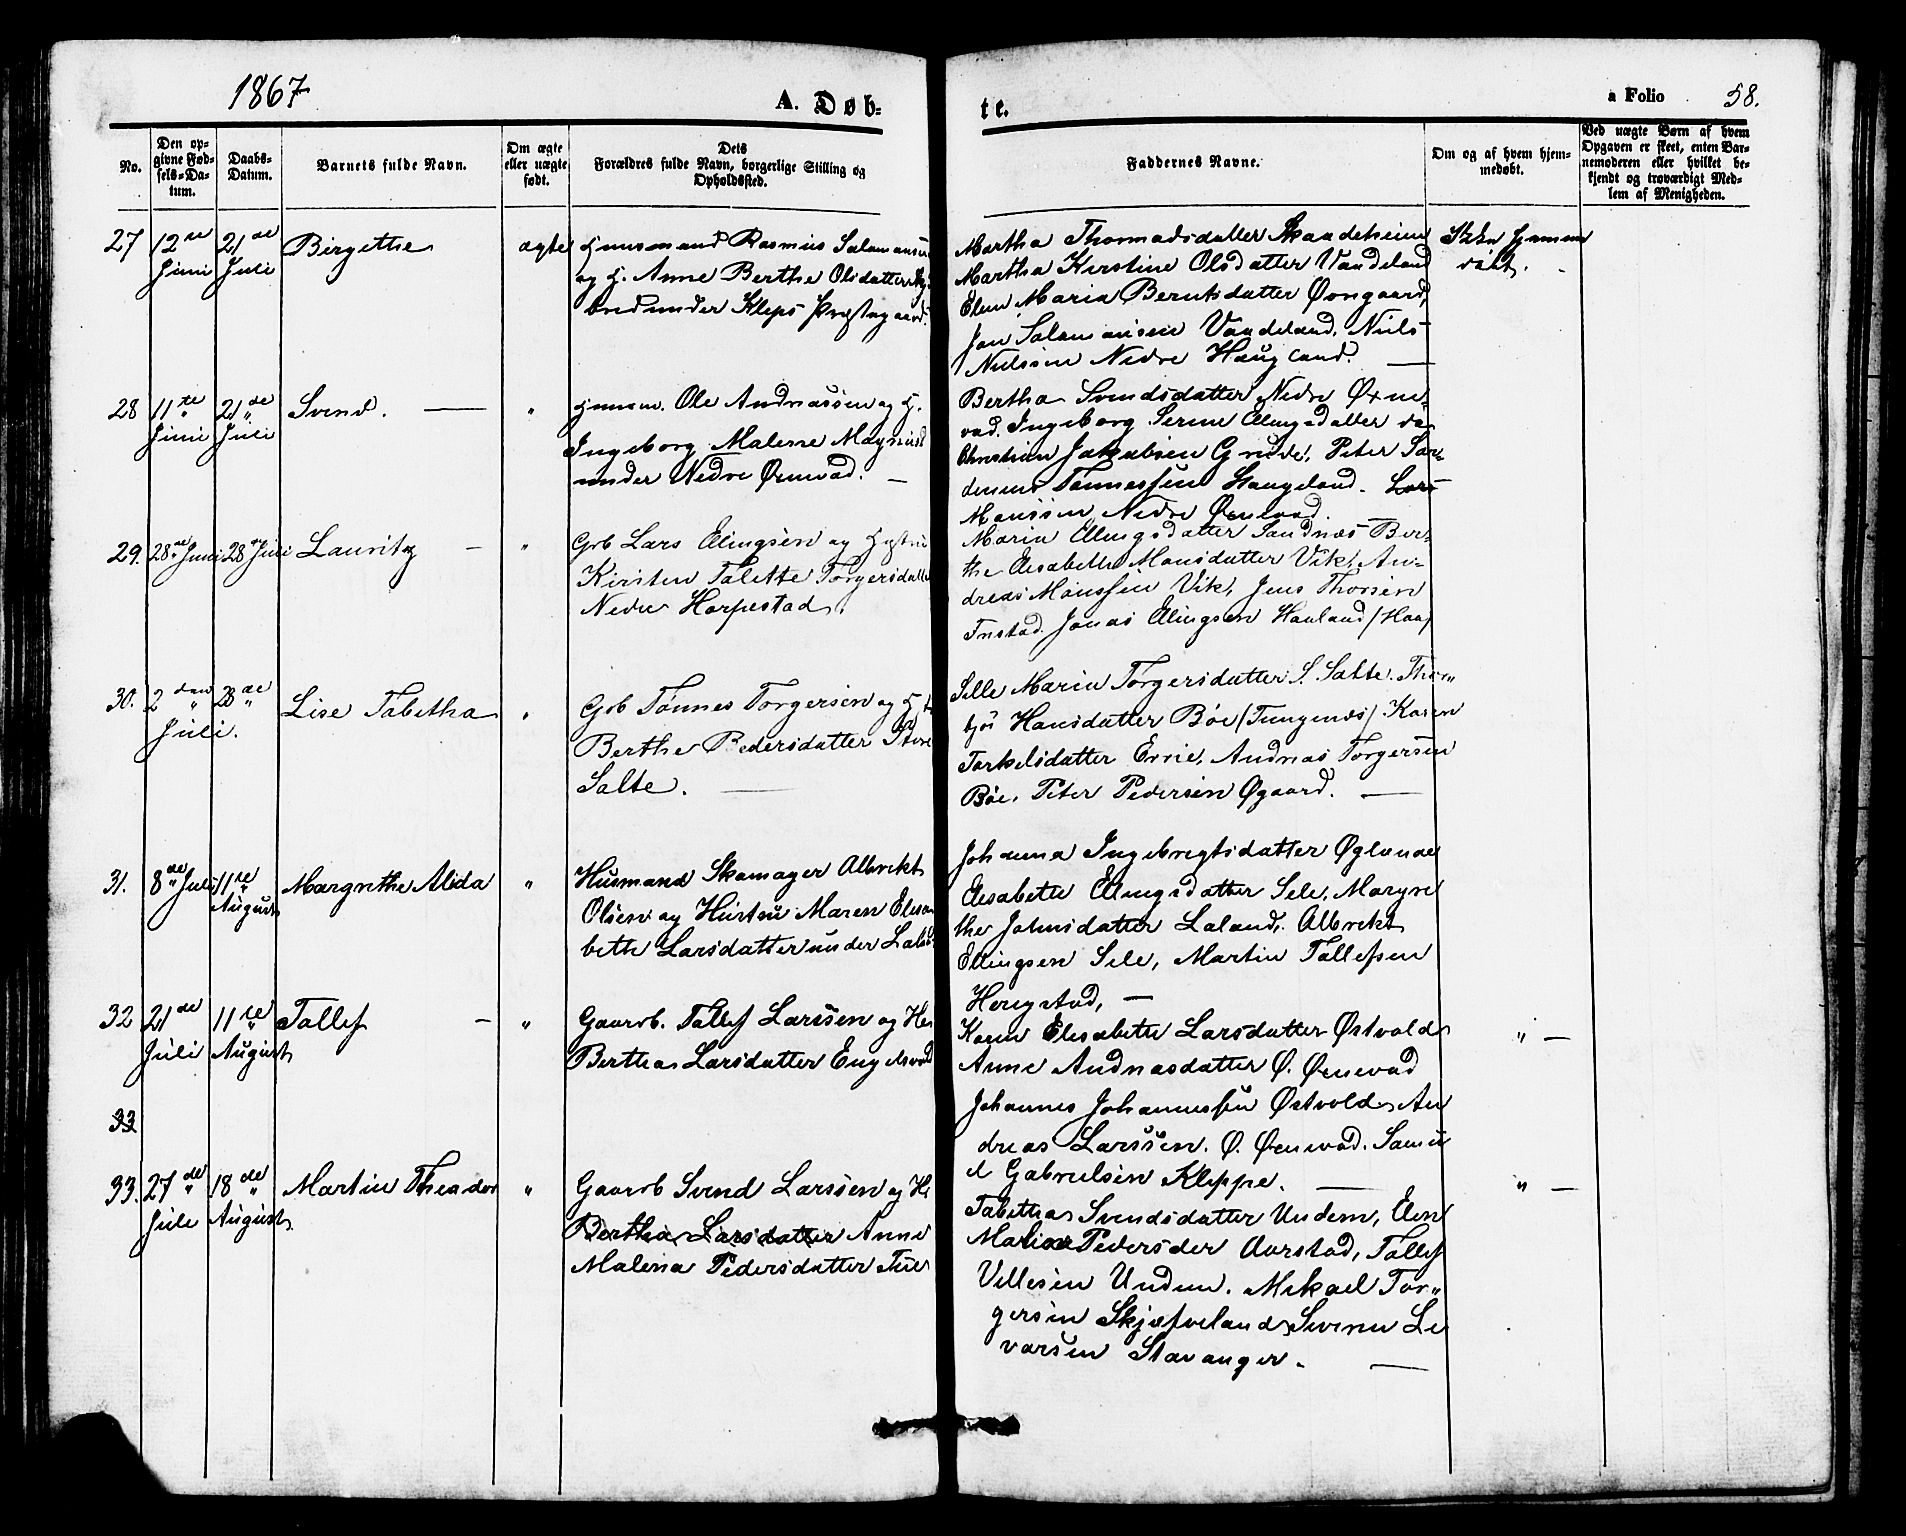 1867
A. Døb-
te.
a Folio 58.
No.
Den op-
givne Fød-
sels-Da-
tum.
Daabs-
Datum.
Barnets fulde Navn.
Om ægte
eller uægte
født.
Dets
Forældres fulde Navn, borgerlige Stilling og
Opholdssted.
Faddernes Navne.
Om og af hvem hjem-
medøbt.
Ved uægte Børn af hvem
Opgaven er skeet, enten Bar-
nemoderen eller hvilket be-
kjendt og troværdigt Med-
lem af Menigheden.
27
12te
Juni
21de
Juli
Birgithe
ægte
Huusmand Rasmus Salamonsen
og H. Anne Berthe Olsdatter
under Kleps Præstegaard.
Martha Thormodsdatter Skaadeheim
Martha Kirstine Olsdatter Vaadeland
Elen Maria Berntsdatter Øvrgaard,
Jon Salamonsen Vaadeland, Niels
Nielsen Nedre Haugland.
28
11te
Juni
21de
Juli
Svend. —
"
Huusm. Ole Andreassen og H.
Ingeborg Malene Magnusd
under Nedre Øxnevad. —
Bertha Svendsdatter Nedre Øxne-
vad. Ingeborg Serine Elingsdatter
Christian Jakobsen Grude, Peter
Tønnessen Stangeland. Lars
Monssen Nedre Øxnevad.
29.
28de Juni
28de Juli
Lauritz —
"
Grb Lars Elingsen og Hustru
Kirsten Talette Torgersdatter
Nedre Horpestad.
Maria Elingsdatter Sandnæs Ber-
the Elisabeth Monsdatter Vik, An-
dreas Monssen Vik, Jens Thorsen
Tnstad. Jonas Elingsen Haaland /Haa/
30.
2den
Juli.
28de
Lise Tabitha
"
Grb Tønnes Torgersen og H
Berthe Pedersdatter Store
Salte. —
Sille Maria Torgersdatter S. Salte. Thor-
bjør Hansdatter Bøe /Tungenæs/. Karen
Torkelsdatter Errie, Andreas Torgersen
Bøe. Peter Pedersen Øgaard. —
31.
8de Juli
11te
August
Margrethe Alida
"
Husmand Skomager Albrekt
Olsen og Hustru Maren Elisa-
beth Larsdatter under Laland
Johanna Ingebregtsdatter Øglænd
Elisabeth Elingsdatter Sele, Margre
the Johnsdatter Laland, Albrekt
Ellingsen Sele, Martin Tollefsen
Horpestad, —
32
21de
Juli
11te
August
Tollef —
"
Gaardb. Tollef Larssen og H
Bertha Larsdatter Engelsvold
Karen Elisabeth Larsdatter Østvold
Anne Andreasdatter Ø. Øxnevad
Johannes Johannessen Østvold An
dreas Larssen. Ø. Øxnevad. Samu
el Gabrielsen Kleppe. —
" —
33
33.
27de
Juli
18de
August
Martin Theodor
"
Gaardb Svend Larssen og H
Bertha Larsdatter Anne
Malena Pedersdatter Tu
Tabitha Svendsdatter Undem, Elen
Maria Pedersder Aarstad, Tollef
Villesen Undem. Mikael Tor-
gersen Skjæveland Severin Le
varsen Stavanger. —
" —